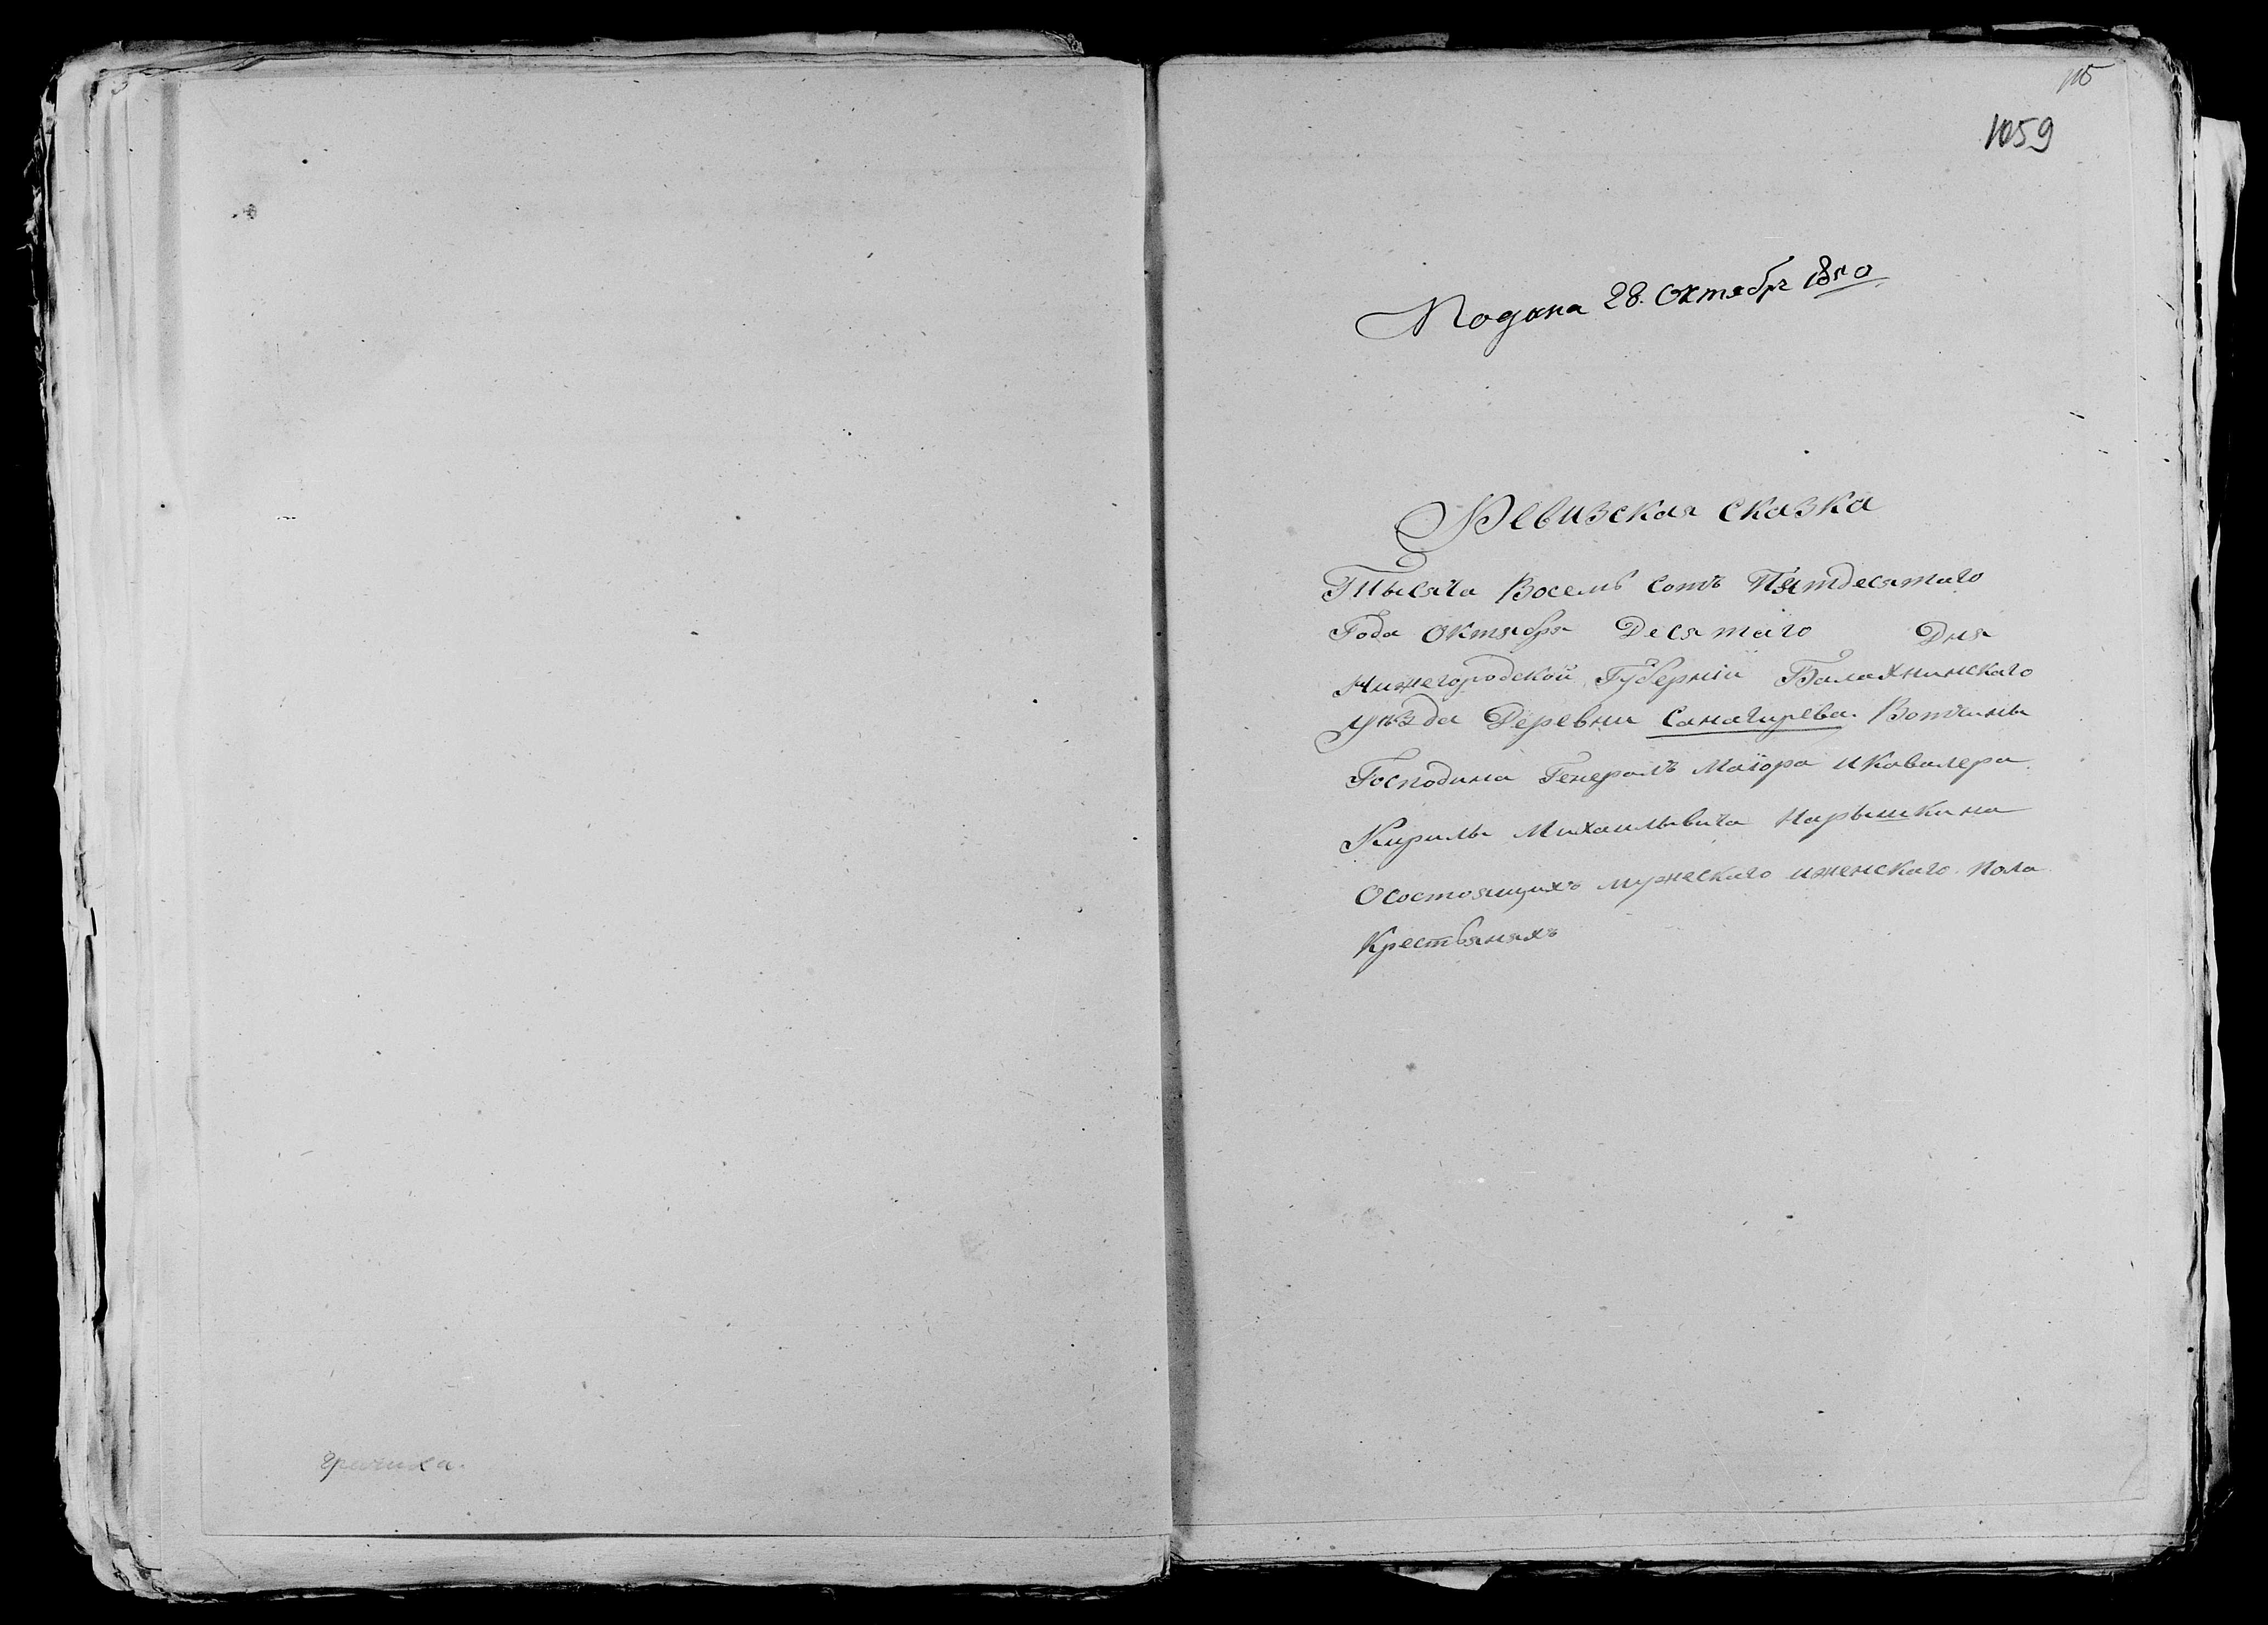 гричиха.
115
1059
Подана 28. Октября 1850
Ревизская сказка
Тысяча Восемь сотъ Пятдесятаго
Года Октября Десятаго Дня
Нижегородской Губерніи Балахнинскаго
уѣзда Деревни Саначирева. Вотчины
Господина Генералъ Маіора и Кавалера
Кирилы Михаилывича Нарышкина
О состоящихъ мужескаго и женскаго пола
Крестьянахъ